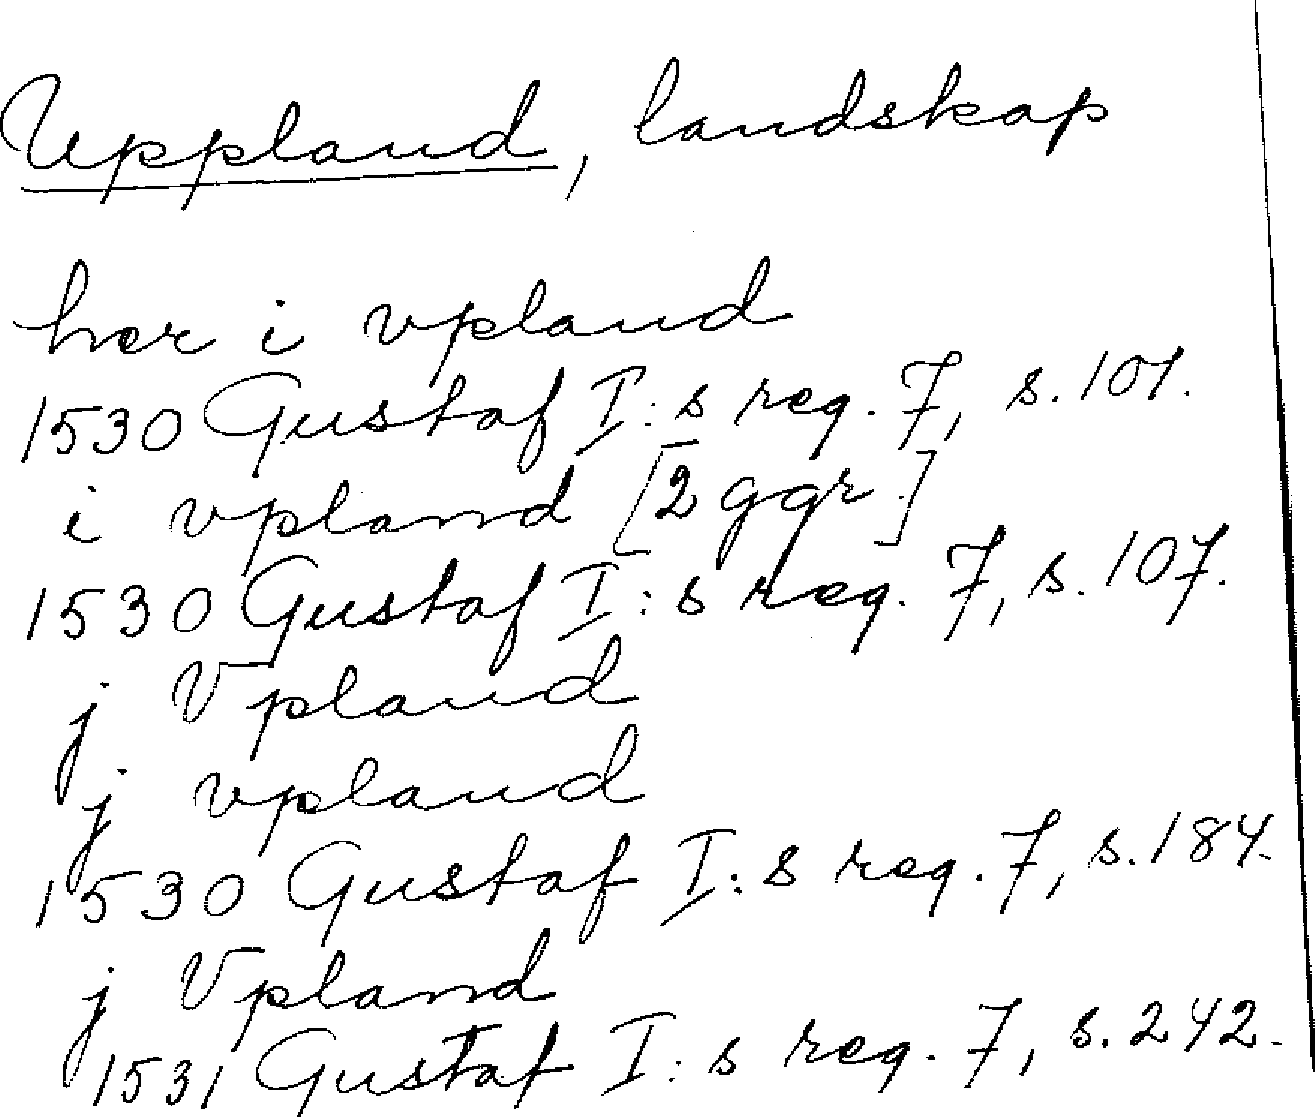 Uppland, landskap
her i vpland
1530 Gustaf I:s reg. 7, s. 101.
i vpland [2 ggr.]
1530 Gustaf I:s reg. 7, s. 107.
j Vpland
j vpland
1530 Gustaf I:s reg. 7, s. 184.
j Vpland
1531 Gustaf I:s reg. 7, s. 242.